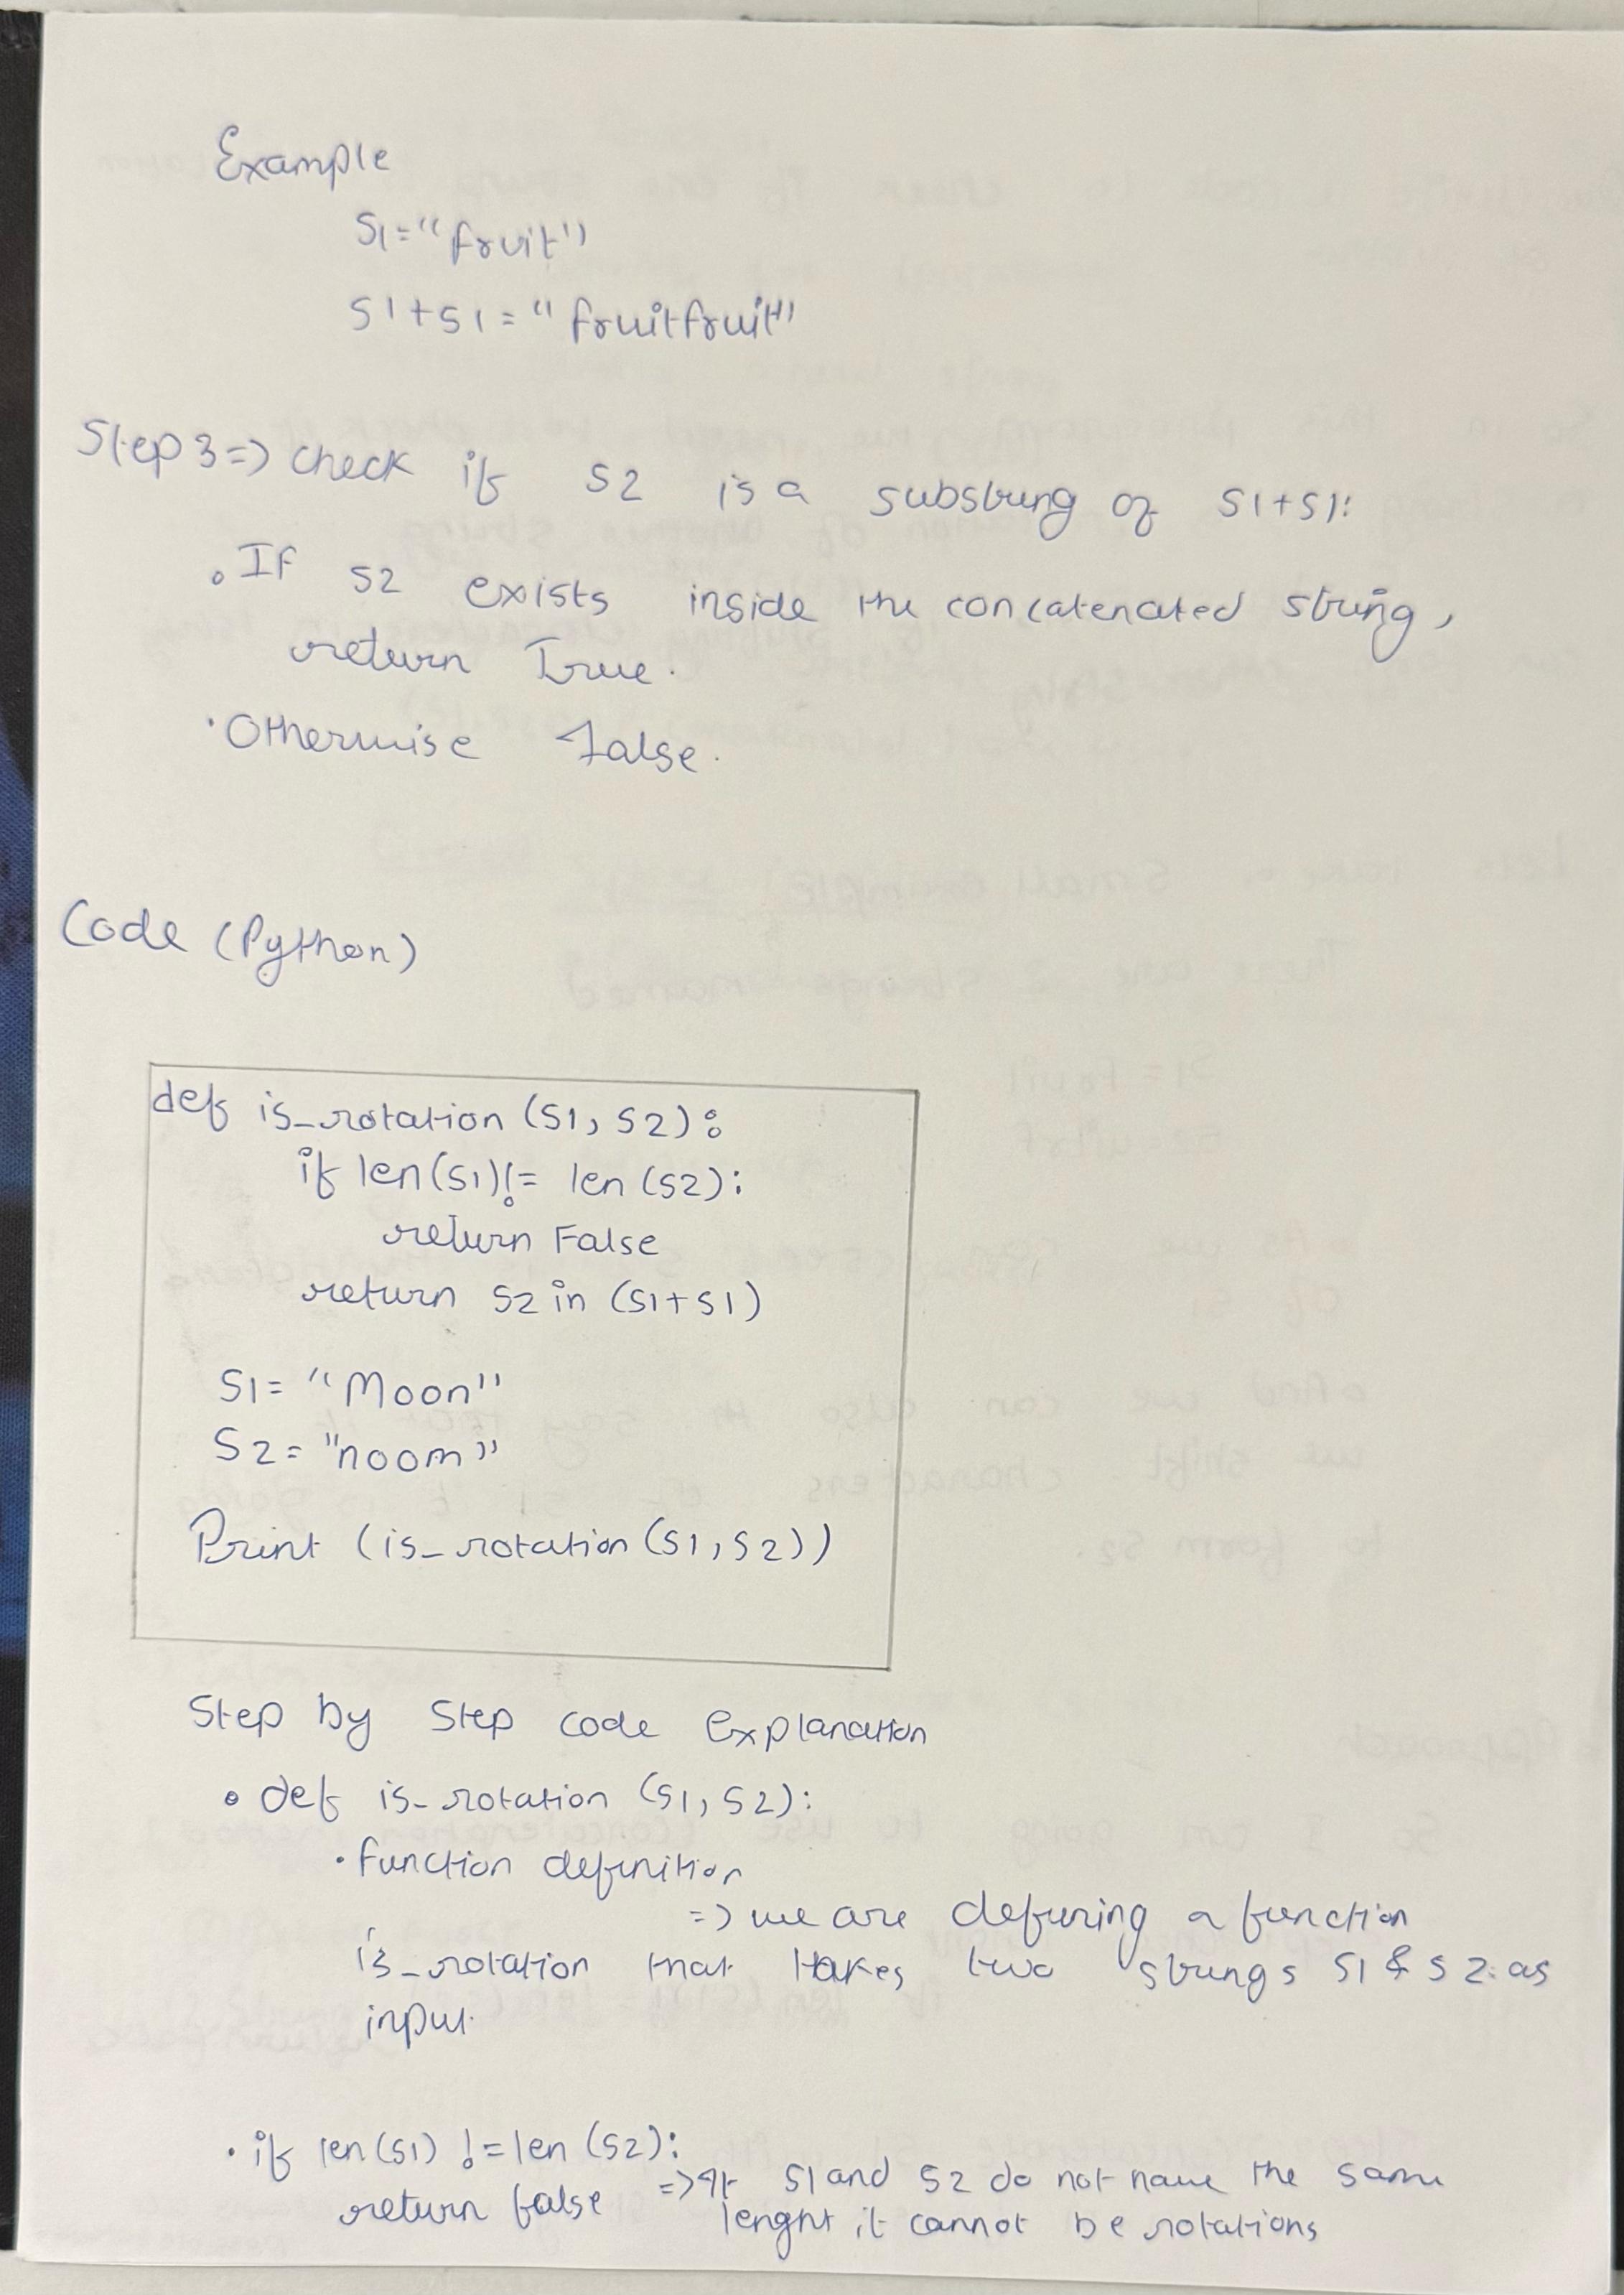 Example
S1="fruit"
S1+S1="fruitfruit"
Step 3=> Check if S2 is a substring of S1+S1:
If S2 exists inside the concatenated string,
return True.
Otherwise false.
Code (Python)
def is_rotation (S1, S2):
if len(S1)!= len (S2):
return False
return S2 in (S1+S1)
S1= "Moon"
S2= "noom"
Print (is_rotation (S1, S2))
Step by Step code Explanation
def is_rotation (S1, S2):
function definition
=> we are defining a function
is_rotation that takes two strings S1 & S2 as
input
if len(S1) != len (S2):
return false => If S1 and S2 do not have the same
lenght it cannot be rotations